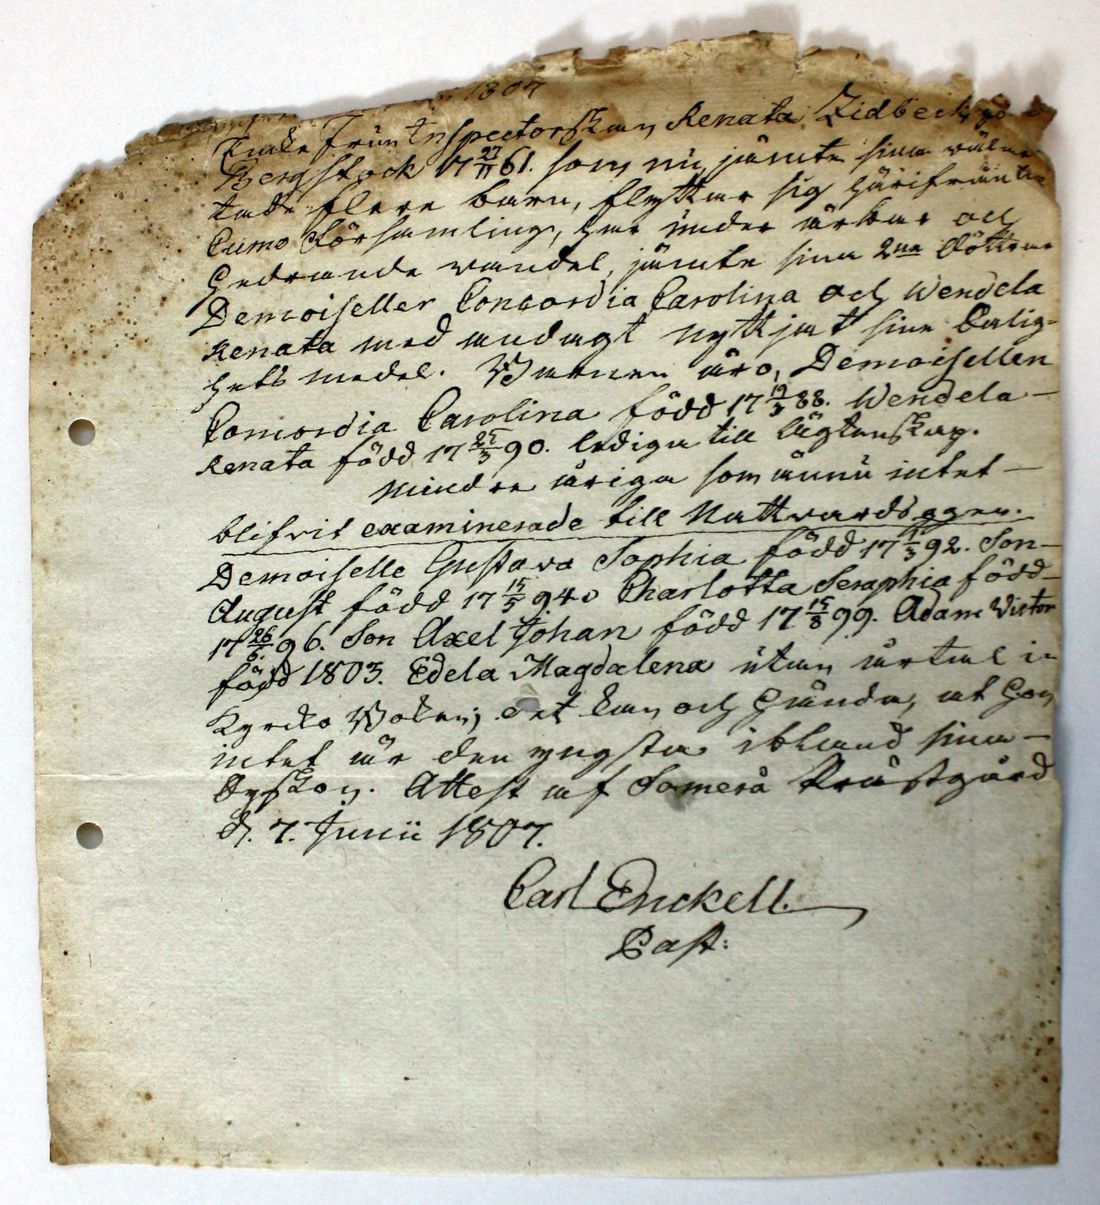 1807
Enkefrun Inspectorskan Renata Zidbeck
Bergstock 17 27/11 61. som nu jämte sina
flere barn, flyttar sig härifrån till
Cumo Församling, har under ärbar och
hedrande vandel, jämte sina 2ne döttrar
Demoiseller Concordia Carolina och Wendela
Renata med andagt nyttjat sine Salig-
hets medel. Barnen äro, Demoisellen
Concordia Carolina född 17 19/3 88. Wendela
Renata född 17 25/3 90. lediga till ägtenskap.
Mindre åriga som ännu intet
blifvit examinerade till Nattvardsggen.
Demoiselle Gustava Sophia född 17 1/3 92. Son
August född 17 15/5 94. Charlotta Seraphia född
17 26/6 96. Son Axel Johan född 17 15/8 99. Adam Victor
född 1803. Edela Magdalena utan årtal i
Kyrko Boken; det kan och hända, at hon
intet är den yngsta ibland sina
Syskon. Attest af Somero Prästgård
d. 7. Junii 1807.
Carl Enckell.
Past: